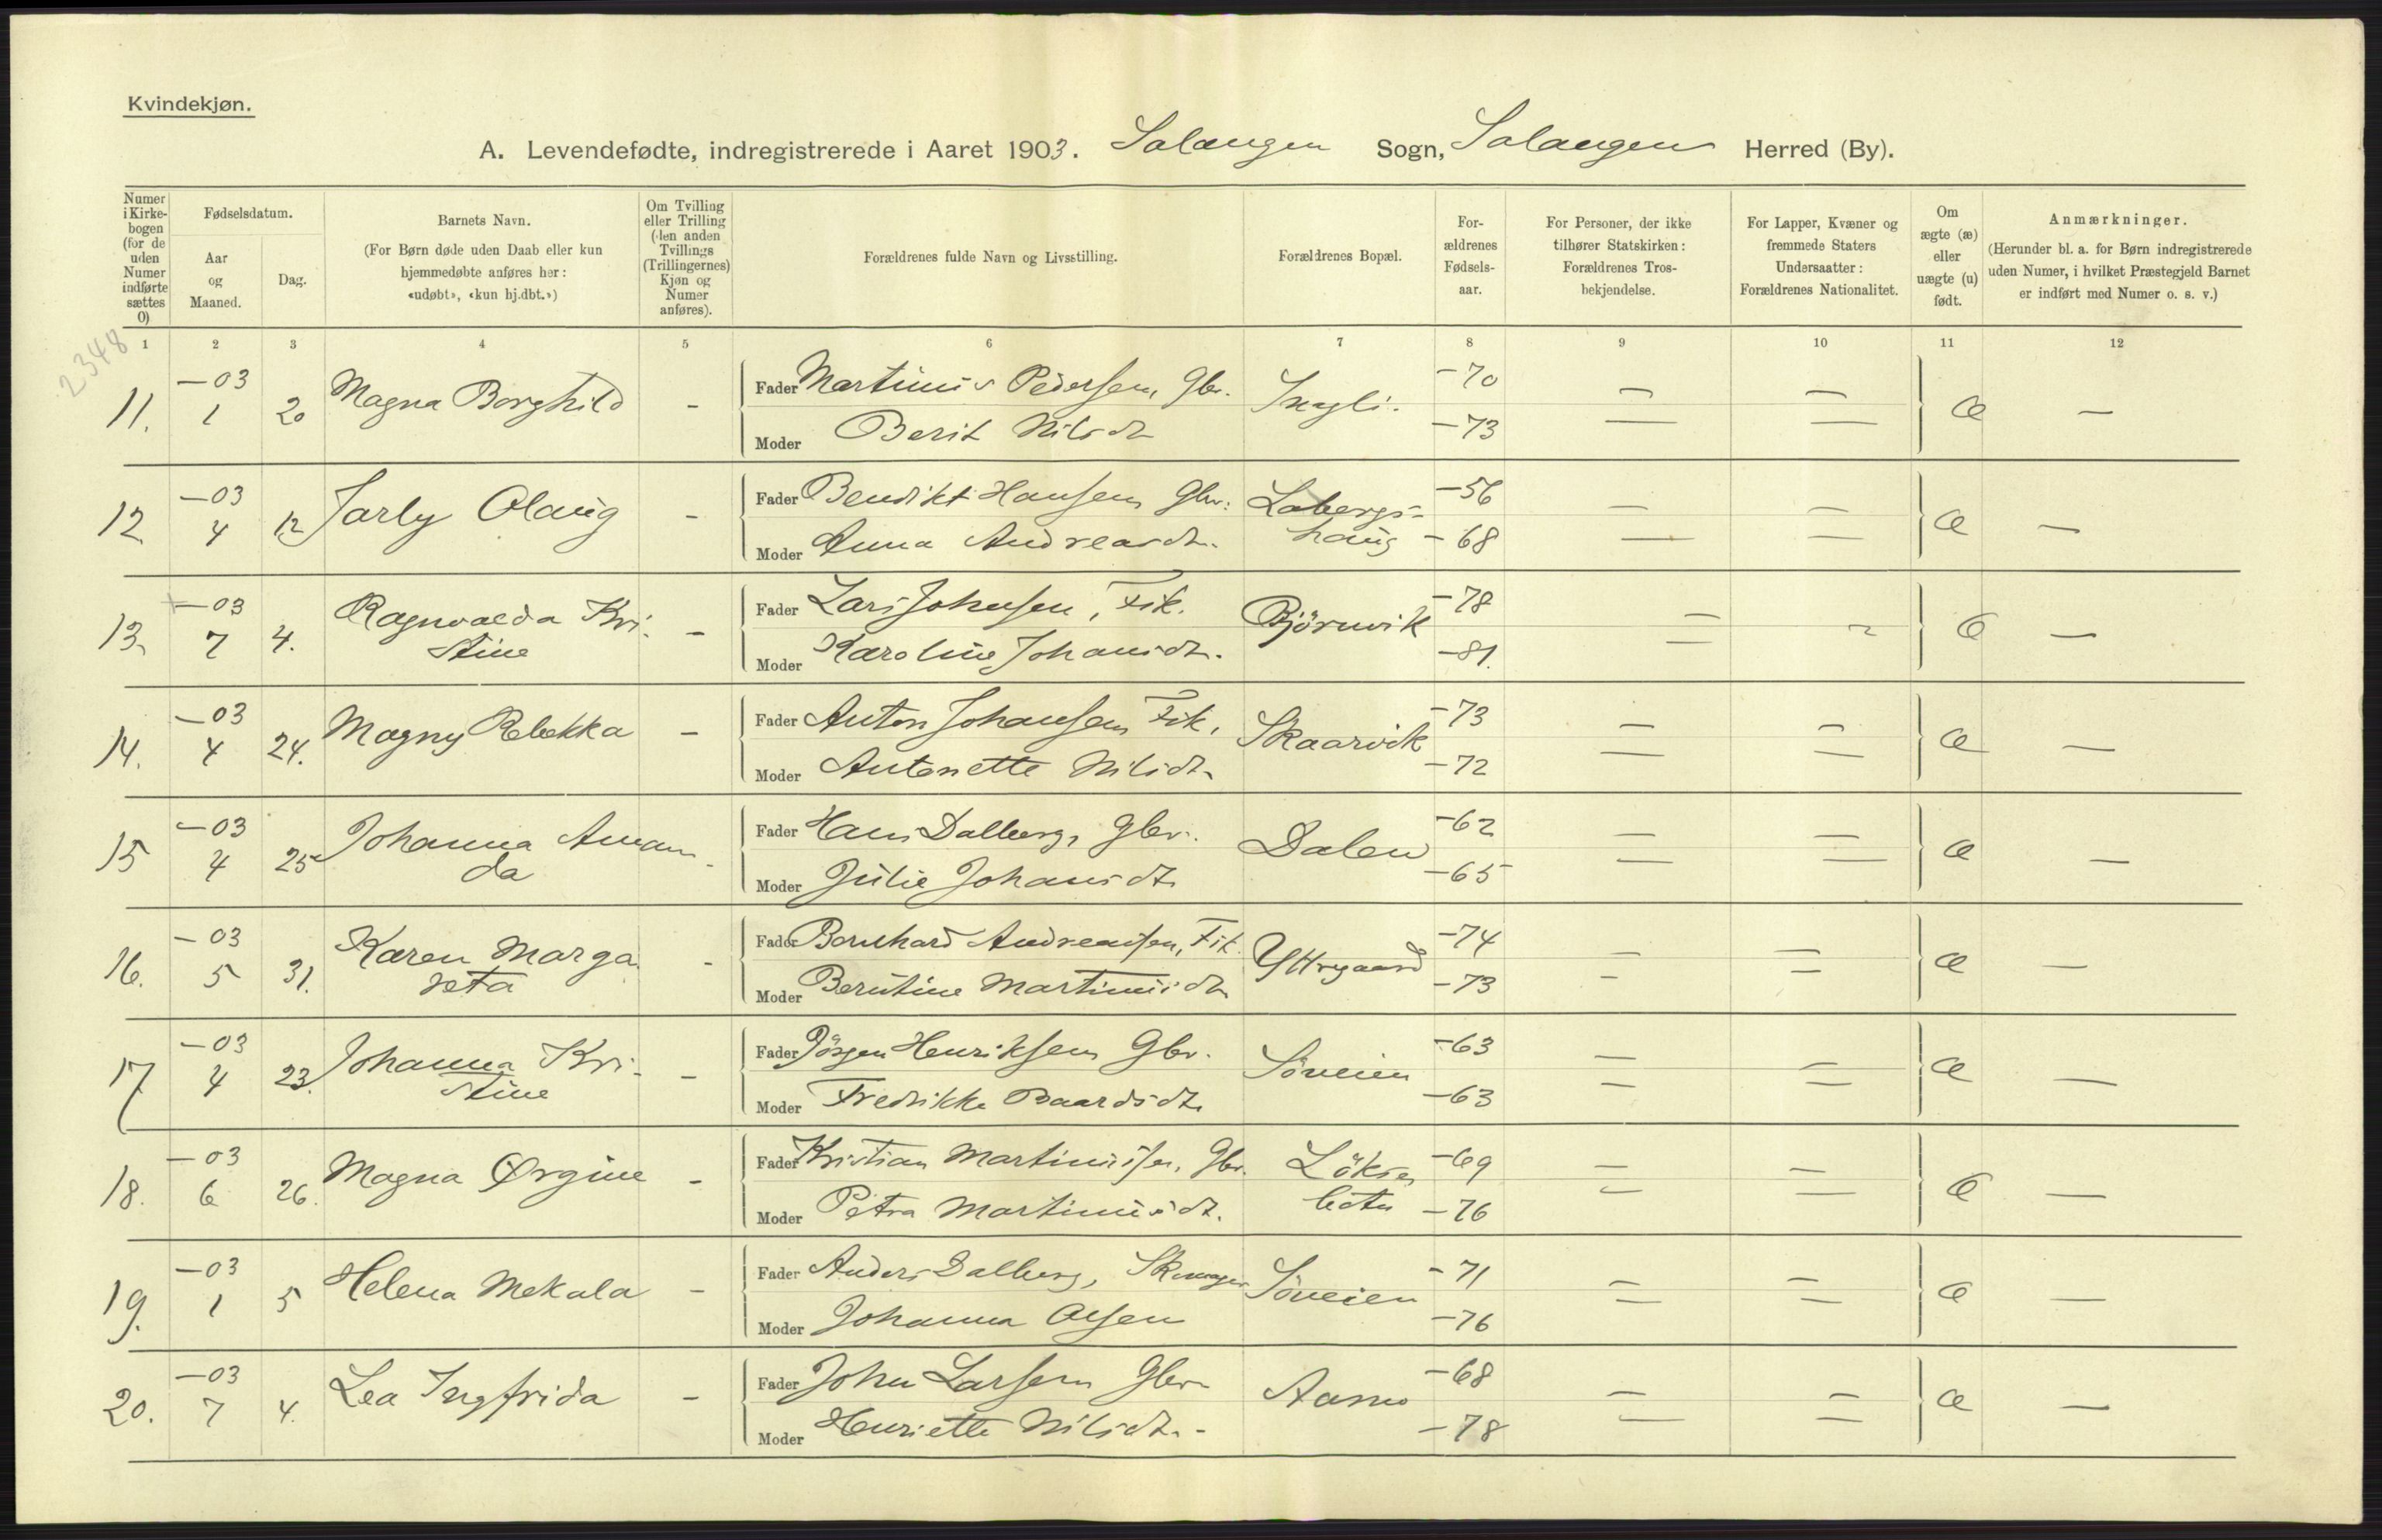 Kvindekjøn.
A. Levendefødte, indregistrerede i Aaret 1903. Salangen Sogn, Salangen Herred (By).
Numer i Kirke-bogen (for de uden Numer indførte sættes 0)
Fødselsdatum.
Aar og Maaned.
Dag.
Barnets Navn.
(For Børn døde uden Daab eller kun
hjemmedøbte anføres her:
«udøbt», «kun hj.dbt.»)
Om Tvilling
eller Trilling
(den anden
Tvillings
(Trillingernes)
Kjøn og
Numer
anføres).
Forældrenes fulde Navn og Livsstilling.
Forældrenes Bopæl.
For-
ældrenes
Fødsels-
aar.
For Personer, der ikke
tilhører Statskirken:
Forældrenes Tros-
bekjendelse.
For Lapper, Kvæner og
fremmede Staters
Undersaatter:
Forældrenes Nationalitet.
Om
ægte (æ)
eller
uægte (u)
født.
Anmærkninger.
(Herunder bl. a. for Børn indregistrerede
uden Numer, i hvilket Præstegjeld Barnet
er indført med Numer o. s. v.)
1 2 3 4 5 6 7 8 9 10 11 12
2348
11. —03 1 20 Magna Borghild - Fader Martinus Pedersen, Gbr. —70 — — æ —
Moder Berit Nilsdt. —73
12 —03 4 12 Jarly Olaug - Fader Benedikt Hansen Gbr. Labergs- —56 — — æ —
Moder Anna Andreasdt. haug - 68
13. —03 7 4. Ragnvalda Kri- - Fader Lars Johnsen, Fik. Björnvik —78 — — æ —
stine Moder Karoline Johansdt. —81.
14. —03 4 24. Magny Rebekka - Fader Anton Johansen Fik. Skaarvik —73 — — æ —
Moder Antonette Nilsdt. —72
15 —03 4 25 Johanna Aman- - Fader Hans Dalberg, Gbr. Dalen —62 — — æ —
da Moder Julie Johansdt. —65
16. —03 5 31. Karen Marga- - Fader Bernhard Andreassen, Fik. Yttregaard —74 — — æ —
reta Moder Berntine Martinusdt. —73
17 —03 4 23. Johanna Kri- - Fader Jörgen Henriksen Gbr. Söveien —63 — — æ —
stine Moder Fredrikke Baardsdt. —63
18. —03 6 26. Magna Ørgine - Fader Kristian Martinussen, Gbr. Lökse- —69 — — æ —
Moder Petra Martinusdt. botn —76
19. —03 1 5 Helena Mekala - Fader Anders Dalberg, Skomager Söveien - 71 — — æ —
Moder Johanna Olsen —76
20. —03 7 4. Lea Ingfrida - Fader John Larsen Gbr. Aarno —68 — — æ —
Moder Henriette Nilsdt. —78